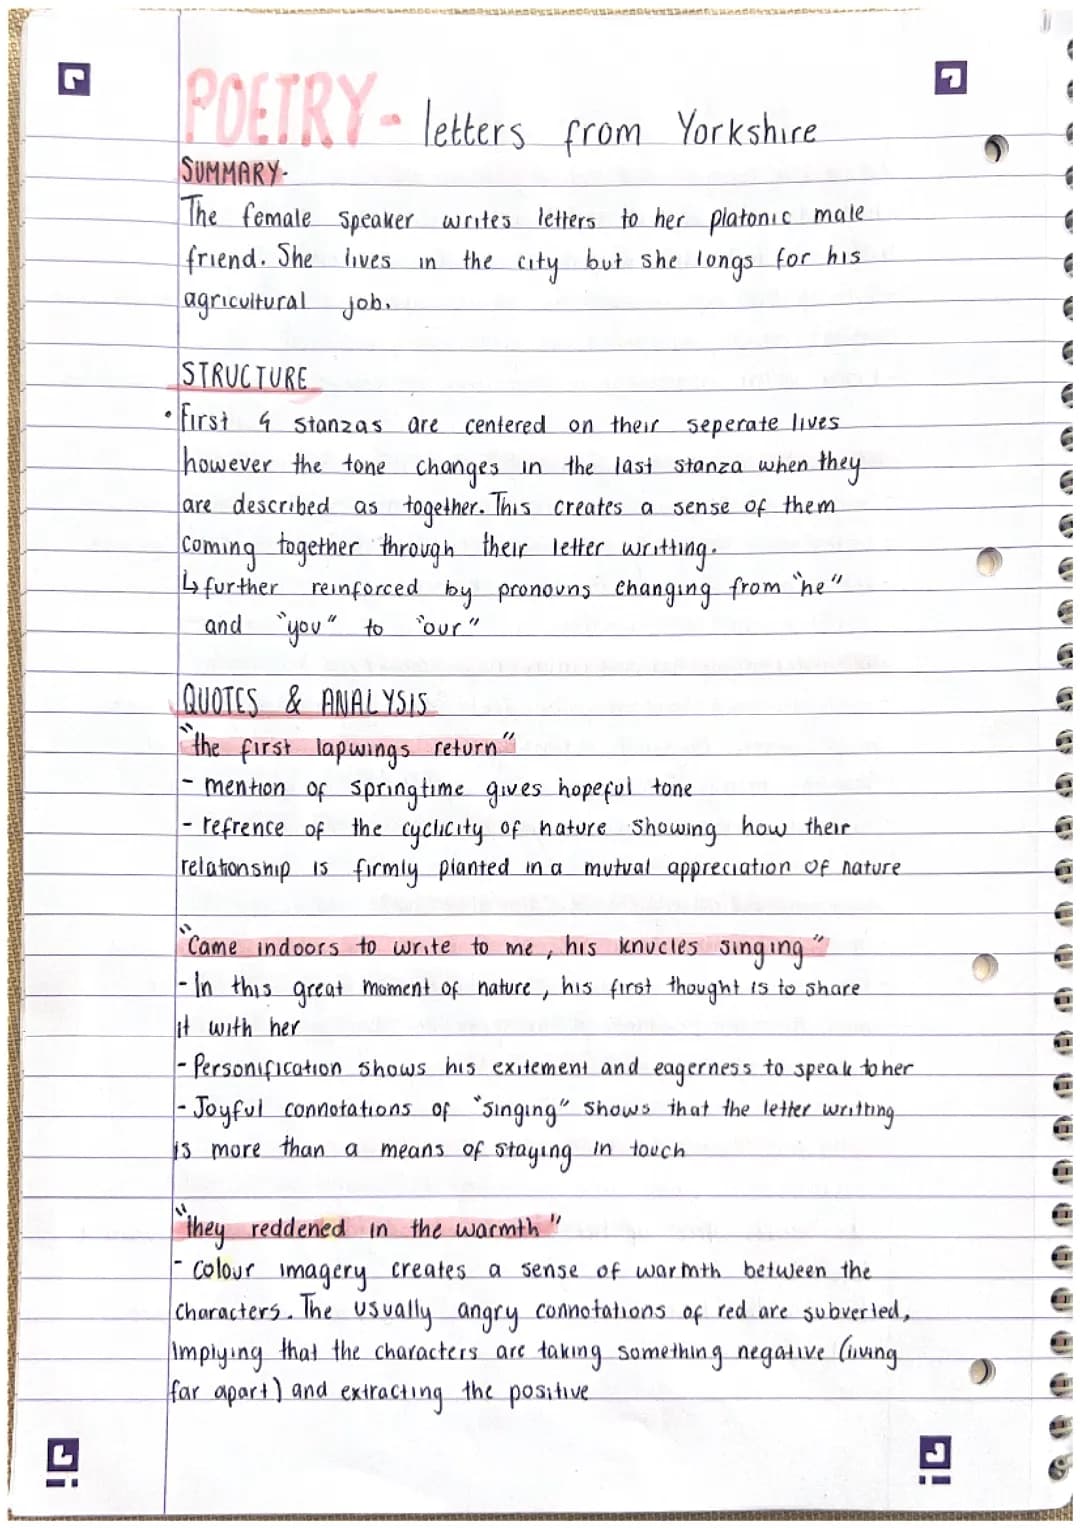 POETRY - letters from Yorkshire
SUMMARY-
The female speaker writes letters to her platonic male
friend. She lives in the city but she longs for his
agricultural job.
STRUCTURE
• First 4 stanzas are centered on their seperate lives
however the tone changes in the last stanza when they
are described as together. This creates a sense of them
coming together through their letter writting.
↳ further reinforced by pronouns changing from "he"
and "you" to "our"
QUOTES & ANALYSIS
"the first lapwings return"
- mention of springtime gives hopeful tone
- refrence of the cyclicity of nature showing how their
relationship is firmly planted in a mutual appreciation of nature
"Came indoors to write to me, his knucles singing"
- In this great moment of nature, his first thought is to share
it with her
- Personification shows his exitement and eagerness to speak to her
- Joyful connotations of "singing" shows that the letter writting
is more than a means of staying in touch
"they reddened in the warmth"
- colour imagery creates a sense of warmth between the
characters. The usually angry connotations of red are subverted,
implying that the characters are taking something negative (living
far apart) and extracting the positive